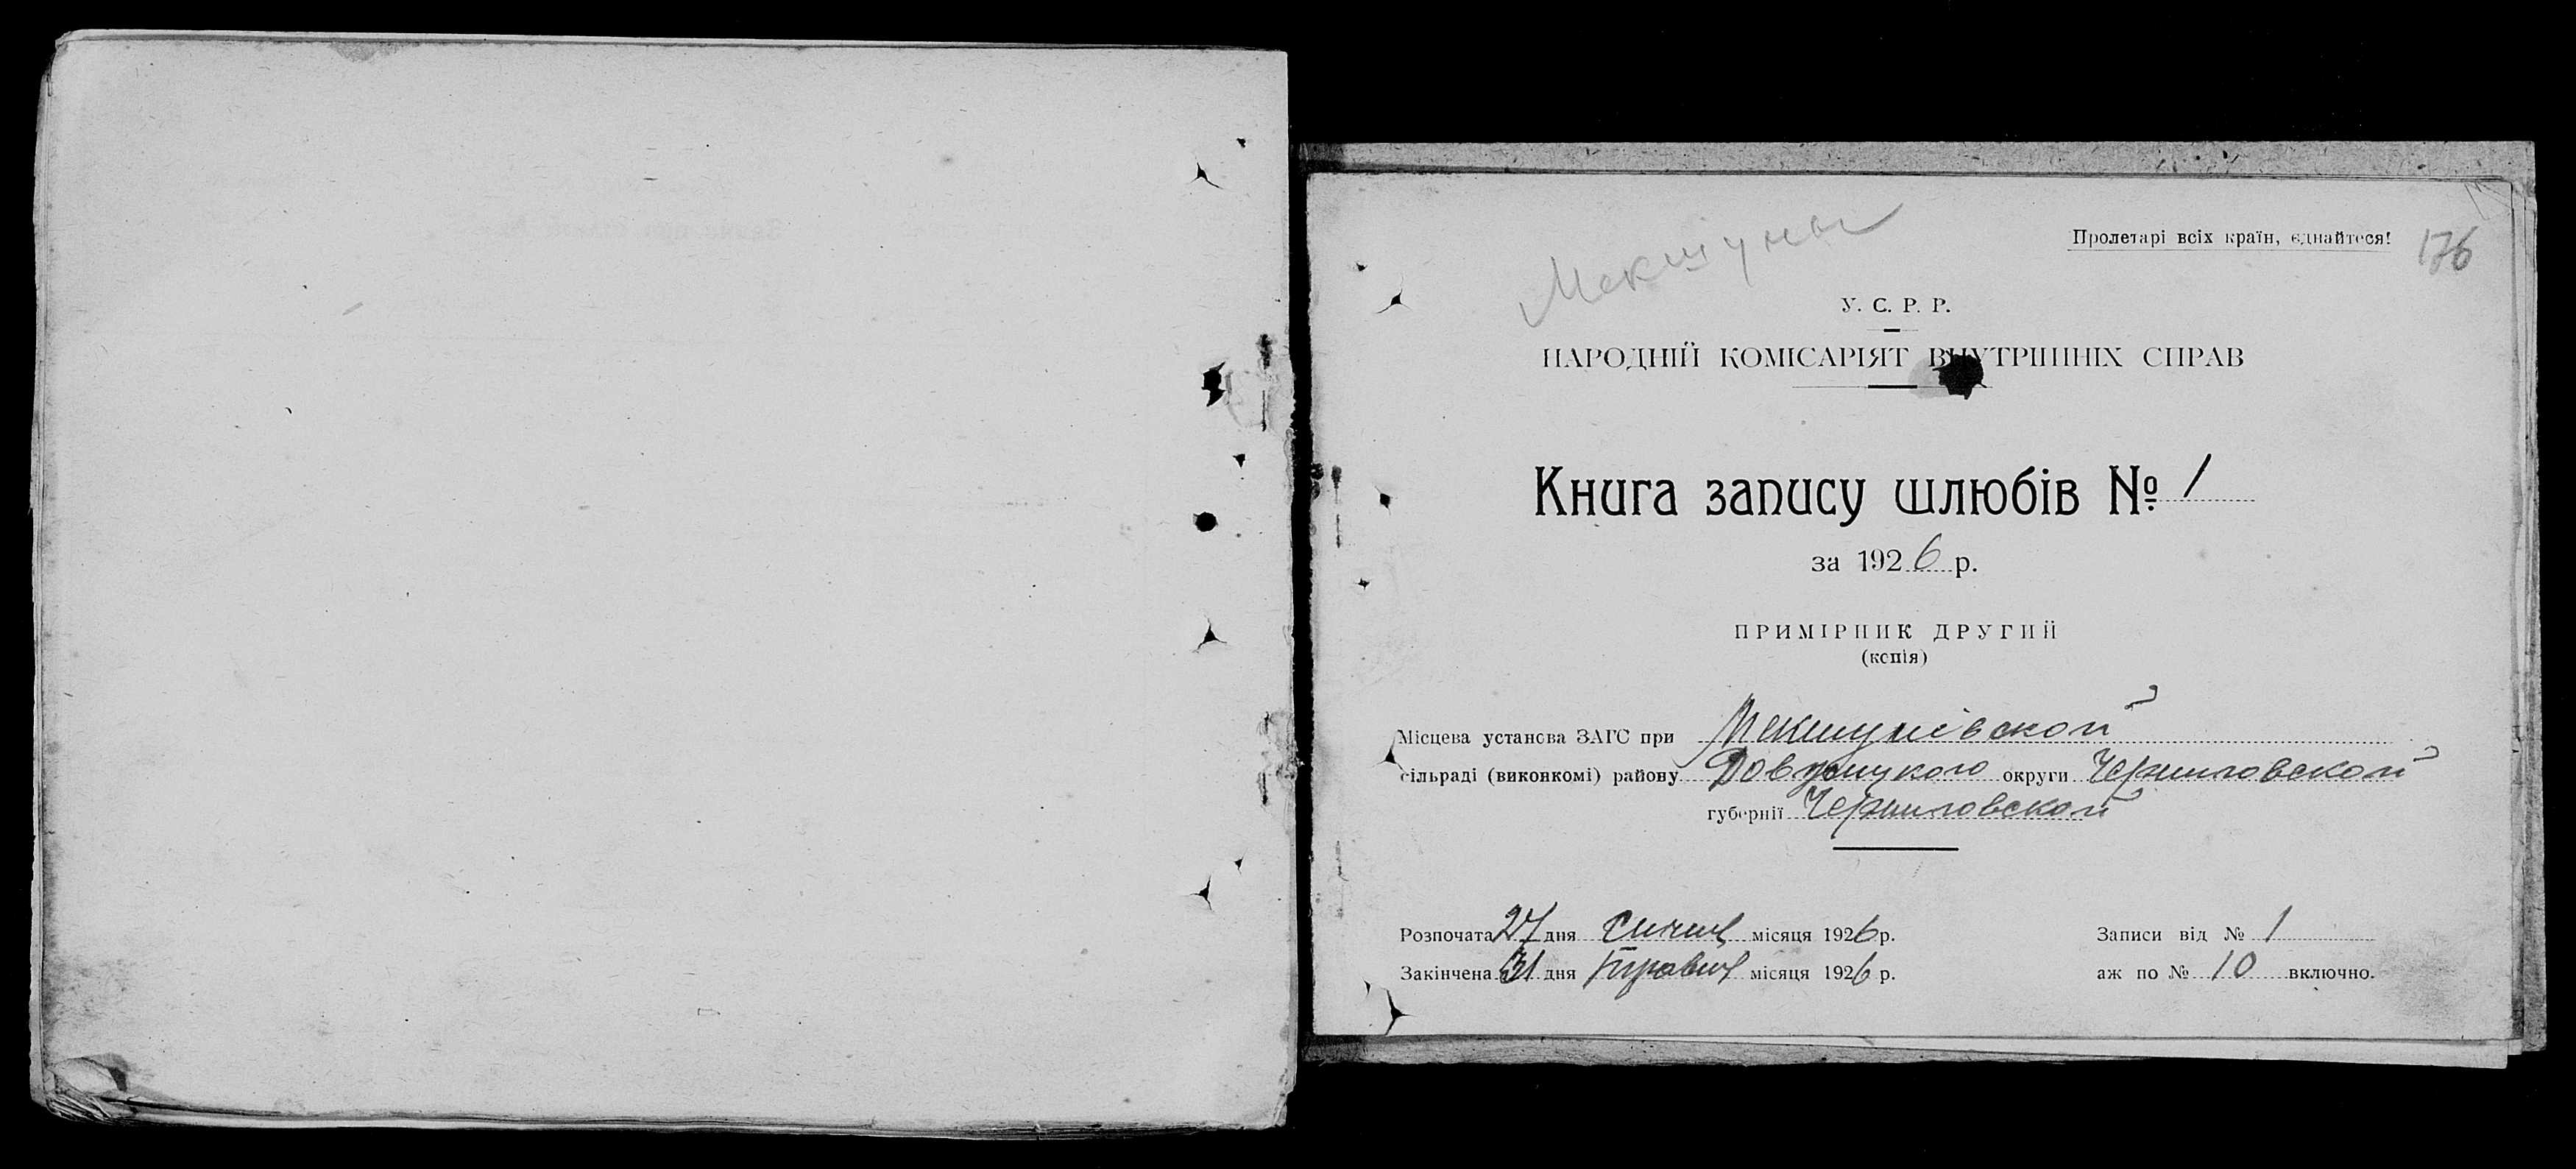 Мекшуны
Пролетарі всіх країн, єднайтеся!
176
У. С. Р. Р.
НАРОДНІЙ КОМІСАРІЯТ ВНУТРІШНІХ СПРАВ
Книга запису шлюбів № 1
за 1926 р.
ПРИМІРНИК ДРУГИЙ
(копія)
Місцева установа ЗАГС при Мекшунівской
сільраді (виконкомі) району округи Черниговской
губернії Черниговской
Розпочата 27 дня Січня місяця 1926 р.
Закінчена 31 дня Травня місяця 1926 р.
Записи від № 1
аж по № 10 включно.